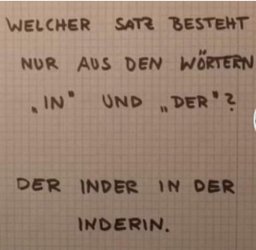 WELCHER SATZ BESTEHT
NUR AUS DEN WÖRTERN
„IN" UND „DER"?
DER INDER IN DER
INDERIN.